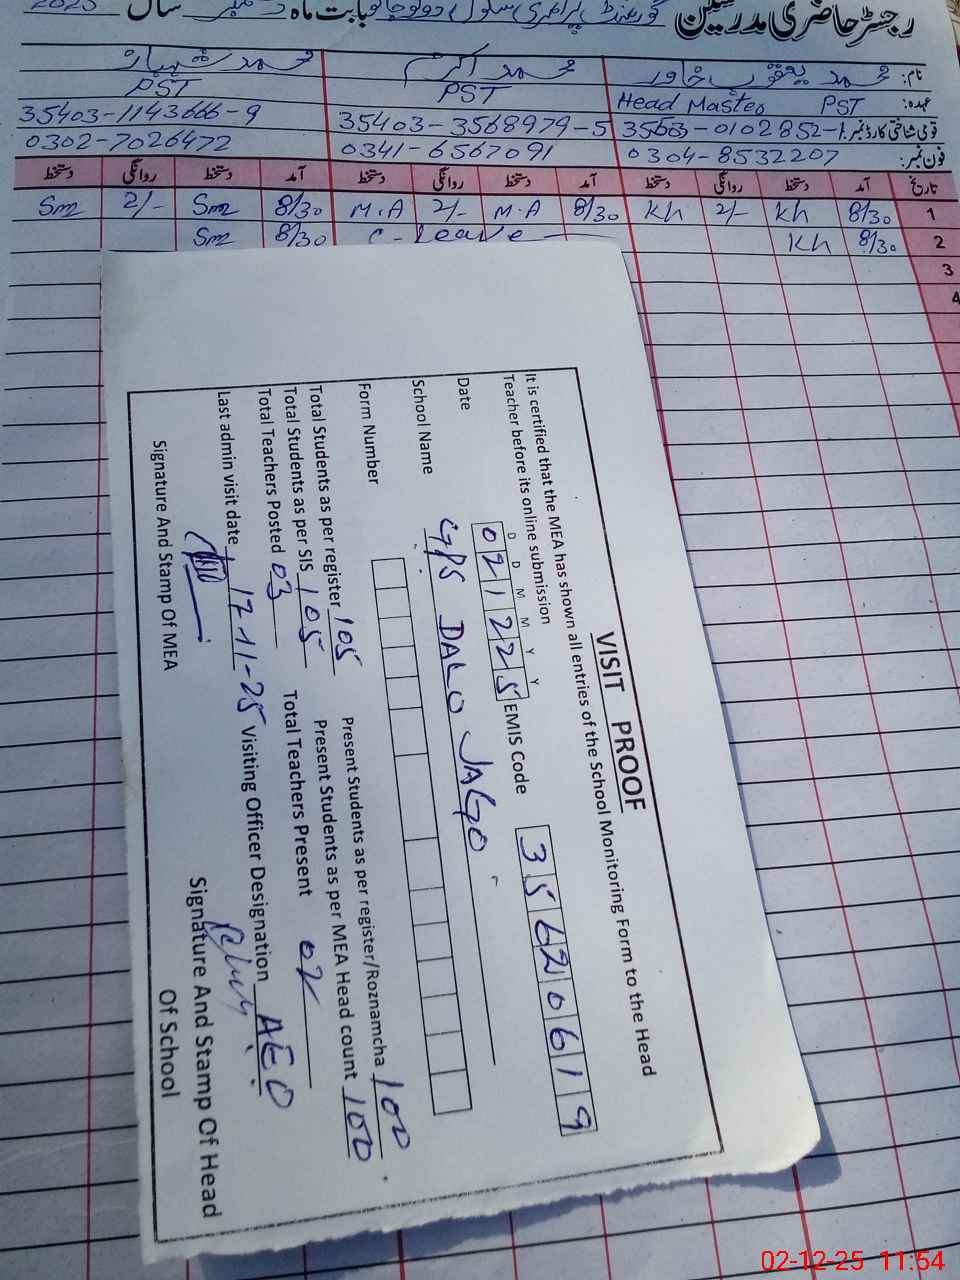 رجسٹر حاضری مدرسین گورنمنٹ پرائمری سکول بابت ماہ دسمبر سال 2025
نام: محمد یعقوب خاور محمد اکرم محمد شہباز
عہدہ: Head Master PST PST PST
قومی شناختی کارڈ نمبر: 35403-3568979-5 35403-1143666-9
فون نمبر: 0304-8532207 0341-6567091 0302-7026472
تاریخ آمد دستخط روانگی دستخط آمد دستخط روانگی دستخط آمد دستخط روانگی دستخط
1 8/30 Kh 2/- Kh 8/30 M.A 2/- M.A 8/30 Smz 2/- Smz
2 8/30 Kh C-leave 8/30 Smz
3
4
VISIT PROOF
It is certified that the MEA has shown all entries of the School Monitoring Form to the Head
Teacher before its online submission
D D M M Y Y
Date 021225 EMIS Code 35620619
School Name GPS DALO JAGO
Form Number
Total Students as per register 105 Present Students as per register/Roznamcha 100
Total Students as per SIS 105 Present Students as per MEA Head count 100
Total Teachers Posted 03 Total Teachers Present 02
Last admin visit date 17-11-25 Visiting Officer Designation AEO
Signature And Stamp Of MEA Signature And Stamp Of Head
Of School
02-12-25 11:54